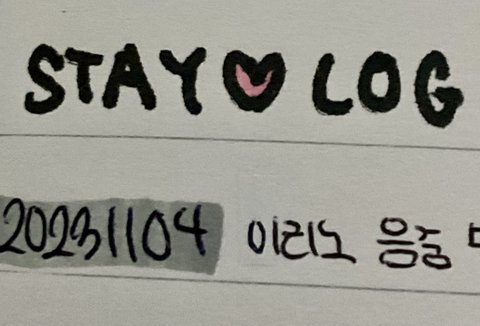 STAY♥LOG
20231104 이리노 음중